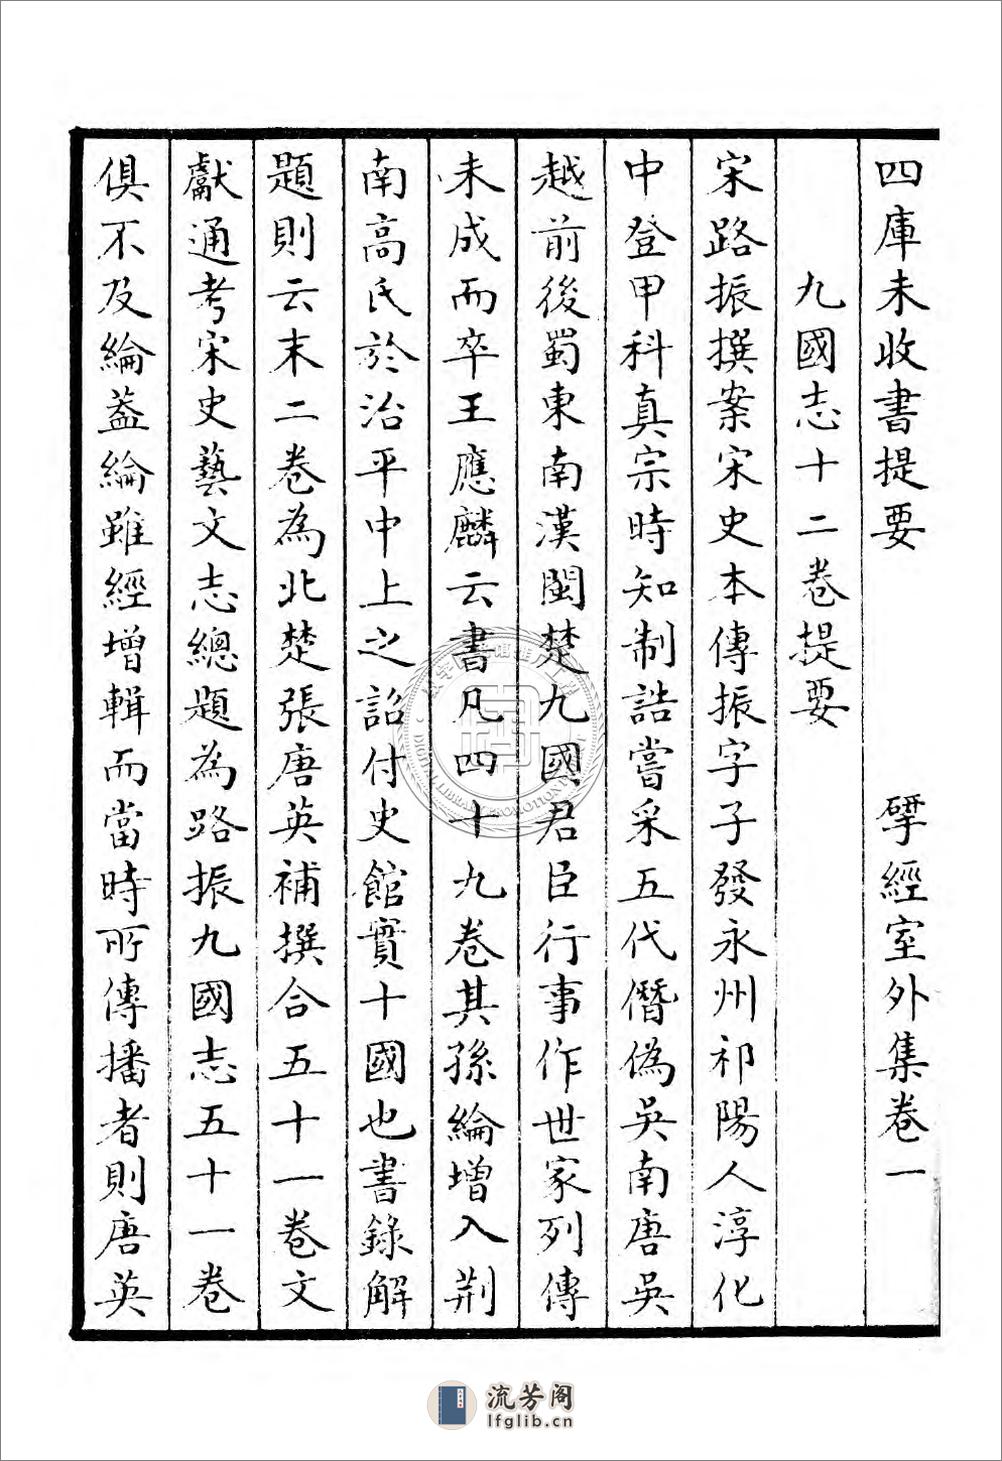 四庫未收書提要 揅經室外集卷一
九國志十二卷提要
宋路振撰案宋史本傳振字子發永州祁陽人淳化
中登甲科真宗時知制誥嘗采五代僭偽吳南唐吳
越前後蜀東南漢閩楚九國君臣行事作世家列傳
未成而卒王應麟云書凡四十九卷其孫綸增入荆
南高氏於治平中上之詔付史館實十國也書錄解
題則云末二卷為北楚張唐英補撰合五十一卷文
獻通考宋史藝文志總題為路振九國志五十一卷
俱不及綸葢綸雖經增輯而當時所傳播者則唐英
流芳阁
lfglib.cn